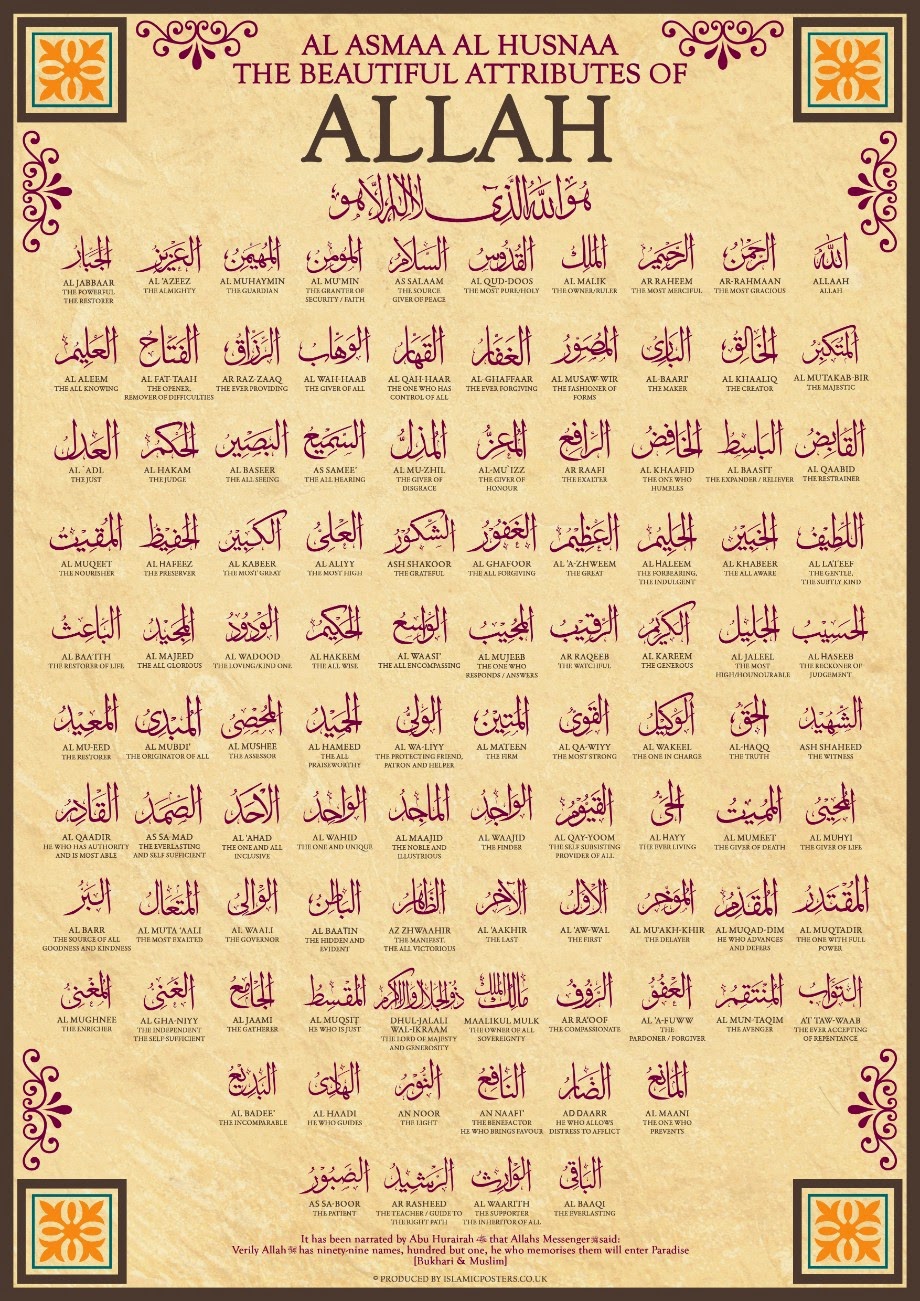 AL ASMAA AL HUSNAA
THE BEAUTIFUL ATTRIBUTES OF
ALLAH
هو الله الذي لا اله الا هو
الله
ALLAAH
ALLAH
الرحمن
AR-RAHMAAN
THE MOST GRACIOUS
الرحيم
AR RAHEEM
THE MOST MERCIFUL
الملك
AL MALIK
THE OWNER/RULER
القدوس
AL QUD-DOOS
THE MOST PURE/HOLY
السلام
AS SALAAM
THE SOURCE
GIVER OF PEACE
المؤمن
AL MU'MIN
THE GRANTER OF
SECURITY / FAITH
المهيمن
AL MUHAYMIN
THE GUARDIAN
العزيز
AL 'AZEEZ
THE ALMIGHTY
الجبار
AL JABBAAR
THE POWERFUL
THE RESTORER
المتكبر
AL MUTAKAB-BIR
THE MAJESTIC
الخالق
AL KHAALIQ
THE CREATOR
البارئ
AL-BAARI'
THE MAKER
المصور
AL MUSAW-WIR
THE FASHIONER OF
FORMS
الغفار
AL-GHAFFAAR
THE EVER FORGIVING
القهار
AL QAH-HAAR
THE ONE WHO HAS
CONTROL OF ALL
الوهاب
AL WAH-HAAB
THE GIVER OF ALL
الرزاق
AR RAZ-ZAAQ
THE EVER PROVIDING
الفتاح
AL FAT-TAAH
THE OPENER,
REMOVER OF DIFFICULTIES
العليم
AL ALEEM
THE ALL KNOWING
القابض
AL QAABID
THE RESTRAINER
الباسط
AL BAASIT
THE EXPANDER / RELIEVER
الخافض
AL KHAAFID
THE ONE WHO
HUMBLES
الرافع
AR RAAFI
THE EXALTER
المعز
AL-MU`IZZ
THE GIVER OF
HONOUR
المذل
AL MU-ZHIL
THE GIVER OF
DISGRACE
السميع
AS SAMEE'
THE ALL HEARING
البصير
AL BASEER
THE ALL SEEING
الحكم
AL HAKAM
THE JUDGE
العدل
AL-`ADL
THE JUST
اللطيف
AL LATEEF
THE GENTLE,
THE SUBTLY KIND
الخبير
AL KHABEER
THE ALL AWARE
الحليم
AL HALEEM
THE FORBEARING,
THE INDULGENT
العظيم
AL 'A-ZHWEEM
THE GREAT
الغفور
AL GHAFOOR
THE ALL FORGIVING
الشكور
ASH SHAKOOR
THE GRATEFUL
العلي
AL ALIYY
THE MOST HIGH
الكبير
AL KABEER
THE MOST GREAT
الحفيظ
AL HAFEEZ
THE PRESERVER
المقيت
AL MUQEET
THE NOURISHER
الحسيب
AL HASEEB
THE RECKONER OF
JUDGEMENT
الجليل
AL JALEEL
THE MOST
HIGH/HOUNOURABLE
الكريم
AL KAREEM
THE GENEROUS
الرقيب
AR RAQEEB
THE WATCHFUL
المجيب
AL MUJEEB
THE ONE WHO
RESPONDS / ANSWERS
الواسع
AL WAASI'
THE ALL ENCOMPASSING
الحكيم
AL HAKEEM
THE ALL WISE
الودود
AL WADOOD
THE LOVING/KIND ONE
المجيد
AL MAJEED
THE ALL GLORIOUS
الباعث
AL BAA'ITH
THE RESTORER OF LIFE
الشهيد
ASH SHAHEED
THE WITNESS
الحق
AL-HAQQ
THE TRUTH
الوكيل
AL WAKEEL
THE ONE IN CHARGE
القوي
AL QA-WIYY
THE MOST STRONG
المتين
AL MATEEN
THE FIRM
الولي
AL WA-LIYY
THE PROTECTING FRIEND,
PATRON AND HELPER
الحميد
AL HAMEED
THE ALL
PRAISEWORTHY
المحصي
AL MUSHEE
THE ASSESSOR
المبدئ
AL MUBDI'
THE ORIGINATOR OF ALL
المعيد
AL MU-EED
THE RESTORER
المحيي
AL MUHYI
THE GIVER OF LIFE
المميت
AL MUMEET
THE GIVER OF DEATH
الحي
AL HAYY
THE EVER LIVING
القيوم
AL QAY-YOOM
THE SELF SUBSISTING
PROVIDER OF ALL
الواجد
AL WAAJID
THE FINDER
الماجد
AL MAAJID
THE NOBLE AND
ILLUSTRIOUS
الواحد
AL WAHID
THE ONE AND UNIQUE
الأحد
AL 'AHAD
THE ONE AND ALL
INCLUSIVE
الصمد
AS SA-MAD
THE EVERLASTING
AND SELF SUFFICIENT
القادر
AL QAADIR
HE WHO HAS AUTHORITY
AND IS MOST ABLE
المقتدر
AL MUQTADIR
THE ONE WITH FULL
POWER
المقدم
AL MUQAD-DIM
HE WHO ADVANCES
AND DEFERS
المؤخر
AL MU'AKH-KHIR
THE DELAYER
الأول
AL 'AW-WAL
THE FIRST
الآخر
AL 'AAKHIR
THE LAST
الظاهر
AZ ZHWAAHIR
THE MANIFEST,
THE ALL VICTORIOUS
الباطن
AL BAATIN
THE HIDDEN AND
EVIDENT
الوالي
AL WAALI
THE GOVERNOR
المتعال
AL MUTA 'AALI
THE MOST EXALTED
البر
AL BARR
THE SOURCE OF ALL
GOODNESS AND KINDNESS
التواب
AT TAW-WAAB
THE EVER ACCEPTING
OF REPENTANCE
المنتقم
AL MUN-TAQIM
THE AVENGER
العفو
AL 'A-FUWW
THE
PARDONER / FORGIVER
الرؤف
AR RA'OOF
THE COMPASSIONATE
مالك الملك
MAALIKUL MULK
THE OWNER OF ALL
SOVEREIGNTY
ذو الجلال والاكرام
DHUL-JALALI
WAL-IKRAAM
THE LORD OF MAJESTY
AND GENEROSITY
المقسط
AL MUQSIT
HE WHO IS JUST
الجامع
AL JAAMI
THE GATHERER
الغني
AL GHA-NIYY
THE INDEPENDENT
THE SELF SUFFICIENT
المغني
AL MUGHNEE
THE ENRICHER
المانع
AL MAANI
THE ONE WHO
PREVENTS
الضار
AD DAARR
HE WHO ALLOWS
DISTRESS TO AFFLICT
النافع
AN NAAFI'
THE BENEFACTOR
HE WHO BRINGS FAVOUR
النور
AN NOOR
THE LIGHT
الهادي
AL HAADI
HE WHO GUIDES
البديع
AL BADEE'
THE INCOMPARABLE
الباقي
AL BAAQI
THE EVERLASTING
الوارث
AL WAARITH
THE SUPPORTER
THE INHERITOR OF ALL
الرشيد
AR RASHEED
THE TEACHER / GUIDE TO
THE RIGHT PATH
الصبور
AS SA-BOOR
THE PATIENT
It has been narrated by Abu Hurairah that Allahs Messenger ﷺ said:
Verily Allah has ninety-nine names, hundred but one, he who memorises them will enter Paradise
[Bukhari & Muslim]
© PRODUCED BY ISLAMICPOSTERS.CO.UK